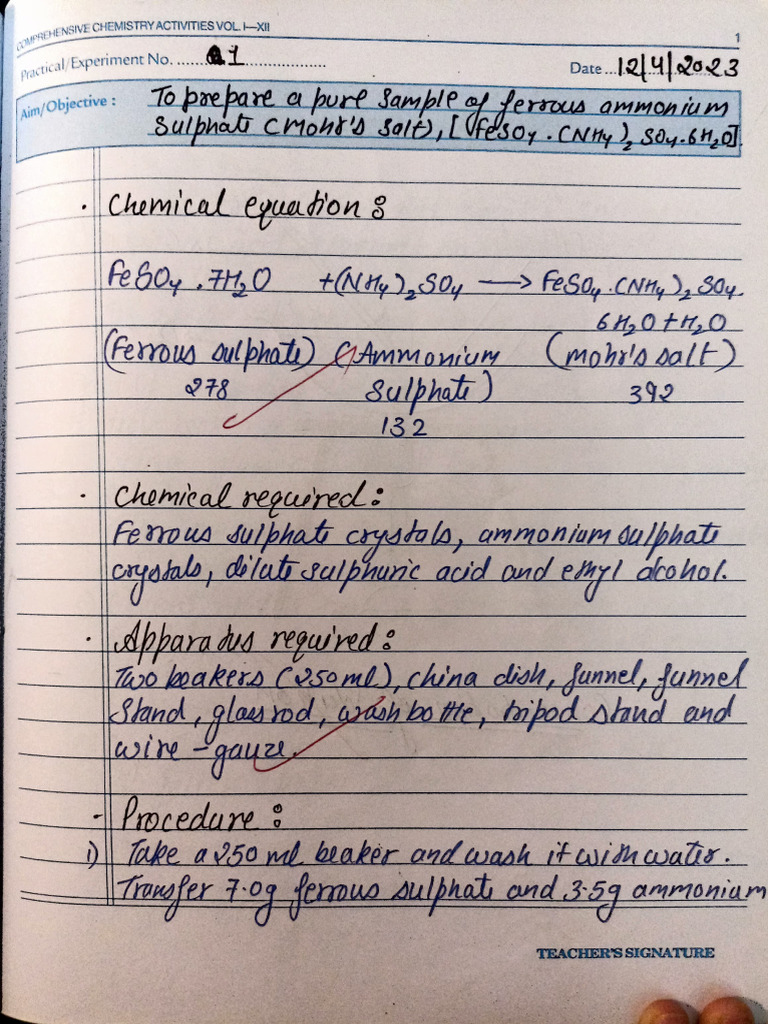 COMPREHENSIVE CHEMISTRY ACTIVITIES VOL. I—XII
1
Practical/Experiment No. ...... 1 ......................
Date ... 12/4/2023
Aim/Objective : To prepare a pure sample of ferrous ammonium
Sulphate (Mohr's salt), [FeSO4 . (NH4)2 SO4.6H2O].
· Chemical equation :
FeSO4 . 7H2O + (NH4)2 SO4 ⟶ FeSO4 . (NH4)2 SO4.
6H2O + H2O
(Ferrous sulphate) (Ammonium (mohr's salt)
278 Sulphate) 392
132
· Chemical required :
Ferrous sulphate crystals, ammonium sulphate
crystals, dilute sulphuric acid and ethyl alcohol.
· Apparatus required :
Two beakers (250 ml), china dish, funnel, funnel
Stand, glass rod, wash bottle, tripod stand and
wire - gauze.
- Procedure :
i) Take a 250 ml beaker and wash it with water.
Transfer 7.0g ferrous sulphate and 3.5g ammonium
TEACHER'S SIGNATURE